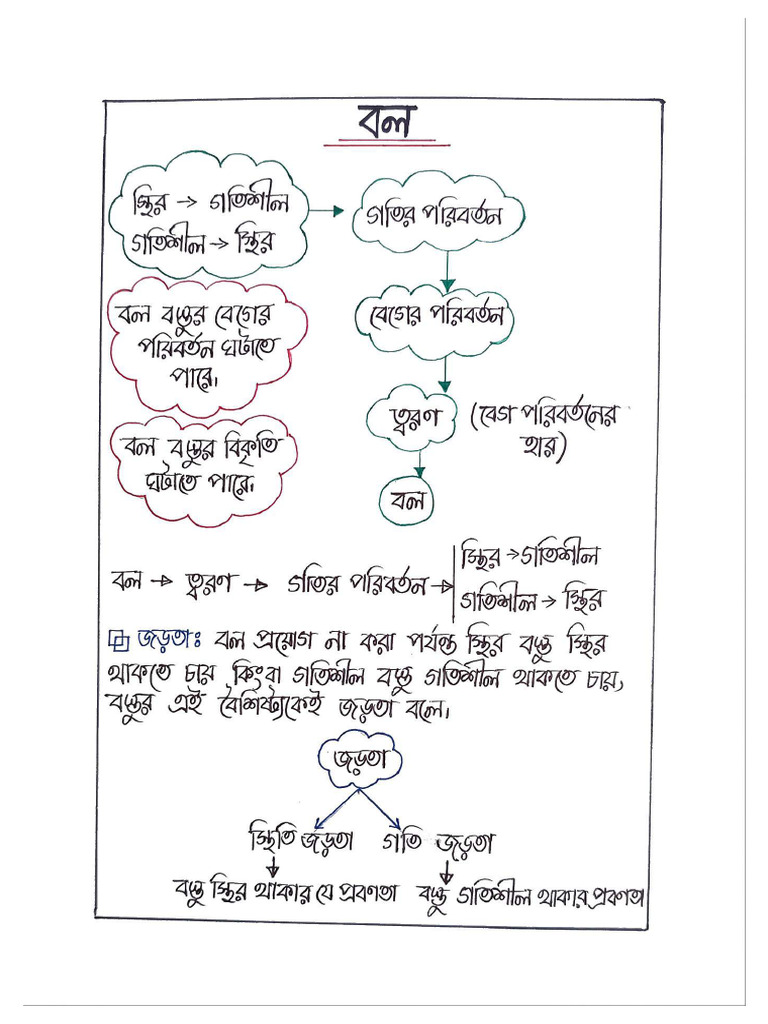 বল
স্থির → গতিশীল
গতিশীল → স্থির
গতির পরিবর্তন
বল বস্তুর বেগের
পরিবর্তন ঘটাতে
পারে।
বেগের পরিবর্তন
ত্বরণ (বেগ পরিবর্তনের
হার)
বল বস্তুর বিকৃতি
ঘটাতে পারে।
বল
বল → ত্বরণ → গতির পরিবর্তন →
স্থির → গতিশীল
গতিশীল → স্থির
জড়তাঃ বল প্রয়োগ না করা পর্যন্ত স্থির বস্তু স্থির
থাকতে চায় কিংবা গতিশীল বস্তু গতিশীল থাকতে চায়,
বস্তুর এই বৈশিষ্ট্যকেই জড়তা বলে।
জড়তা
স্থিতি জড়তা গতি জড়তা
বস্তু স্থির থাকার যে প্রবণতা বস্তু গতিশীল থাকার প্রবণতা